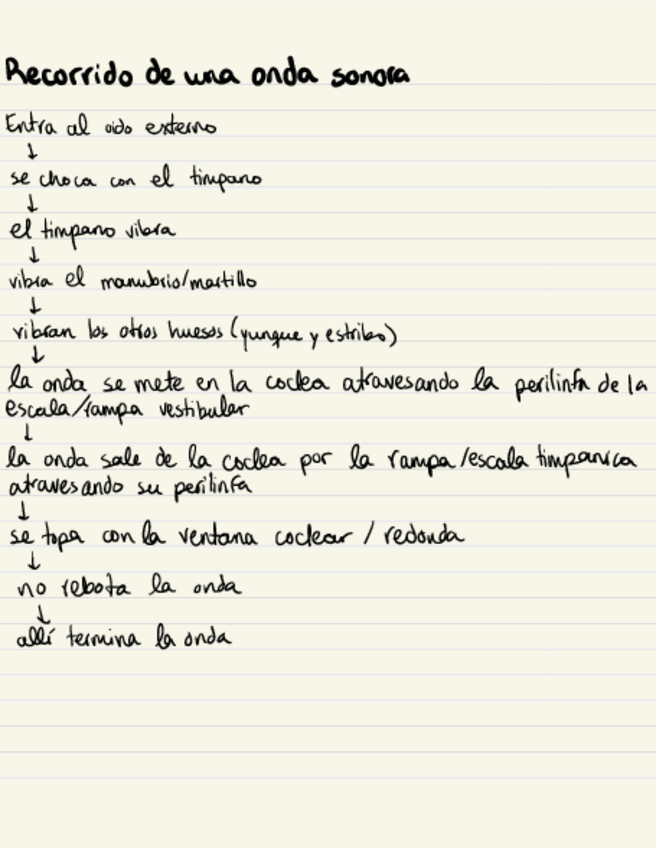 Recorrido de una onda sonora
Entra al oido externo
↓
se choca con el timpano
↓
el timpano vibra
↓
vibra el manubrio/martillo
↓
vibran los otros huesos (yunque y estribo)
↓
la onda se mete en la coclea atravesando la perilinfa de la
escala/rampa vestibular
↓
la onda sale de la coclea por la rampa/escala timpanica
atravesando su perilinfa
↓
se topa con la ventana coclear / redonda
↓
no rebota la onda
↓
allí termina la onda